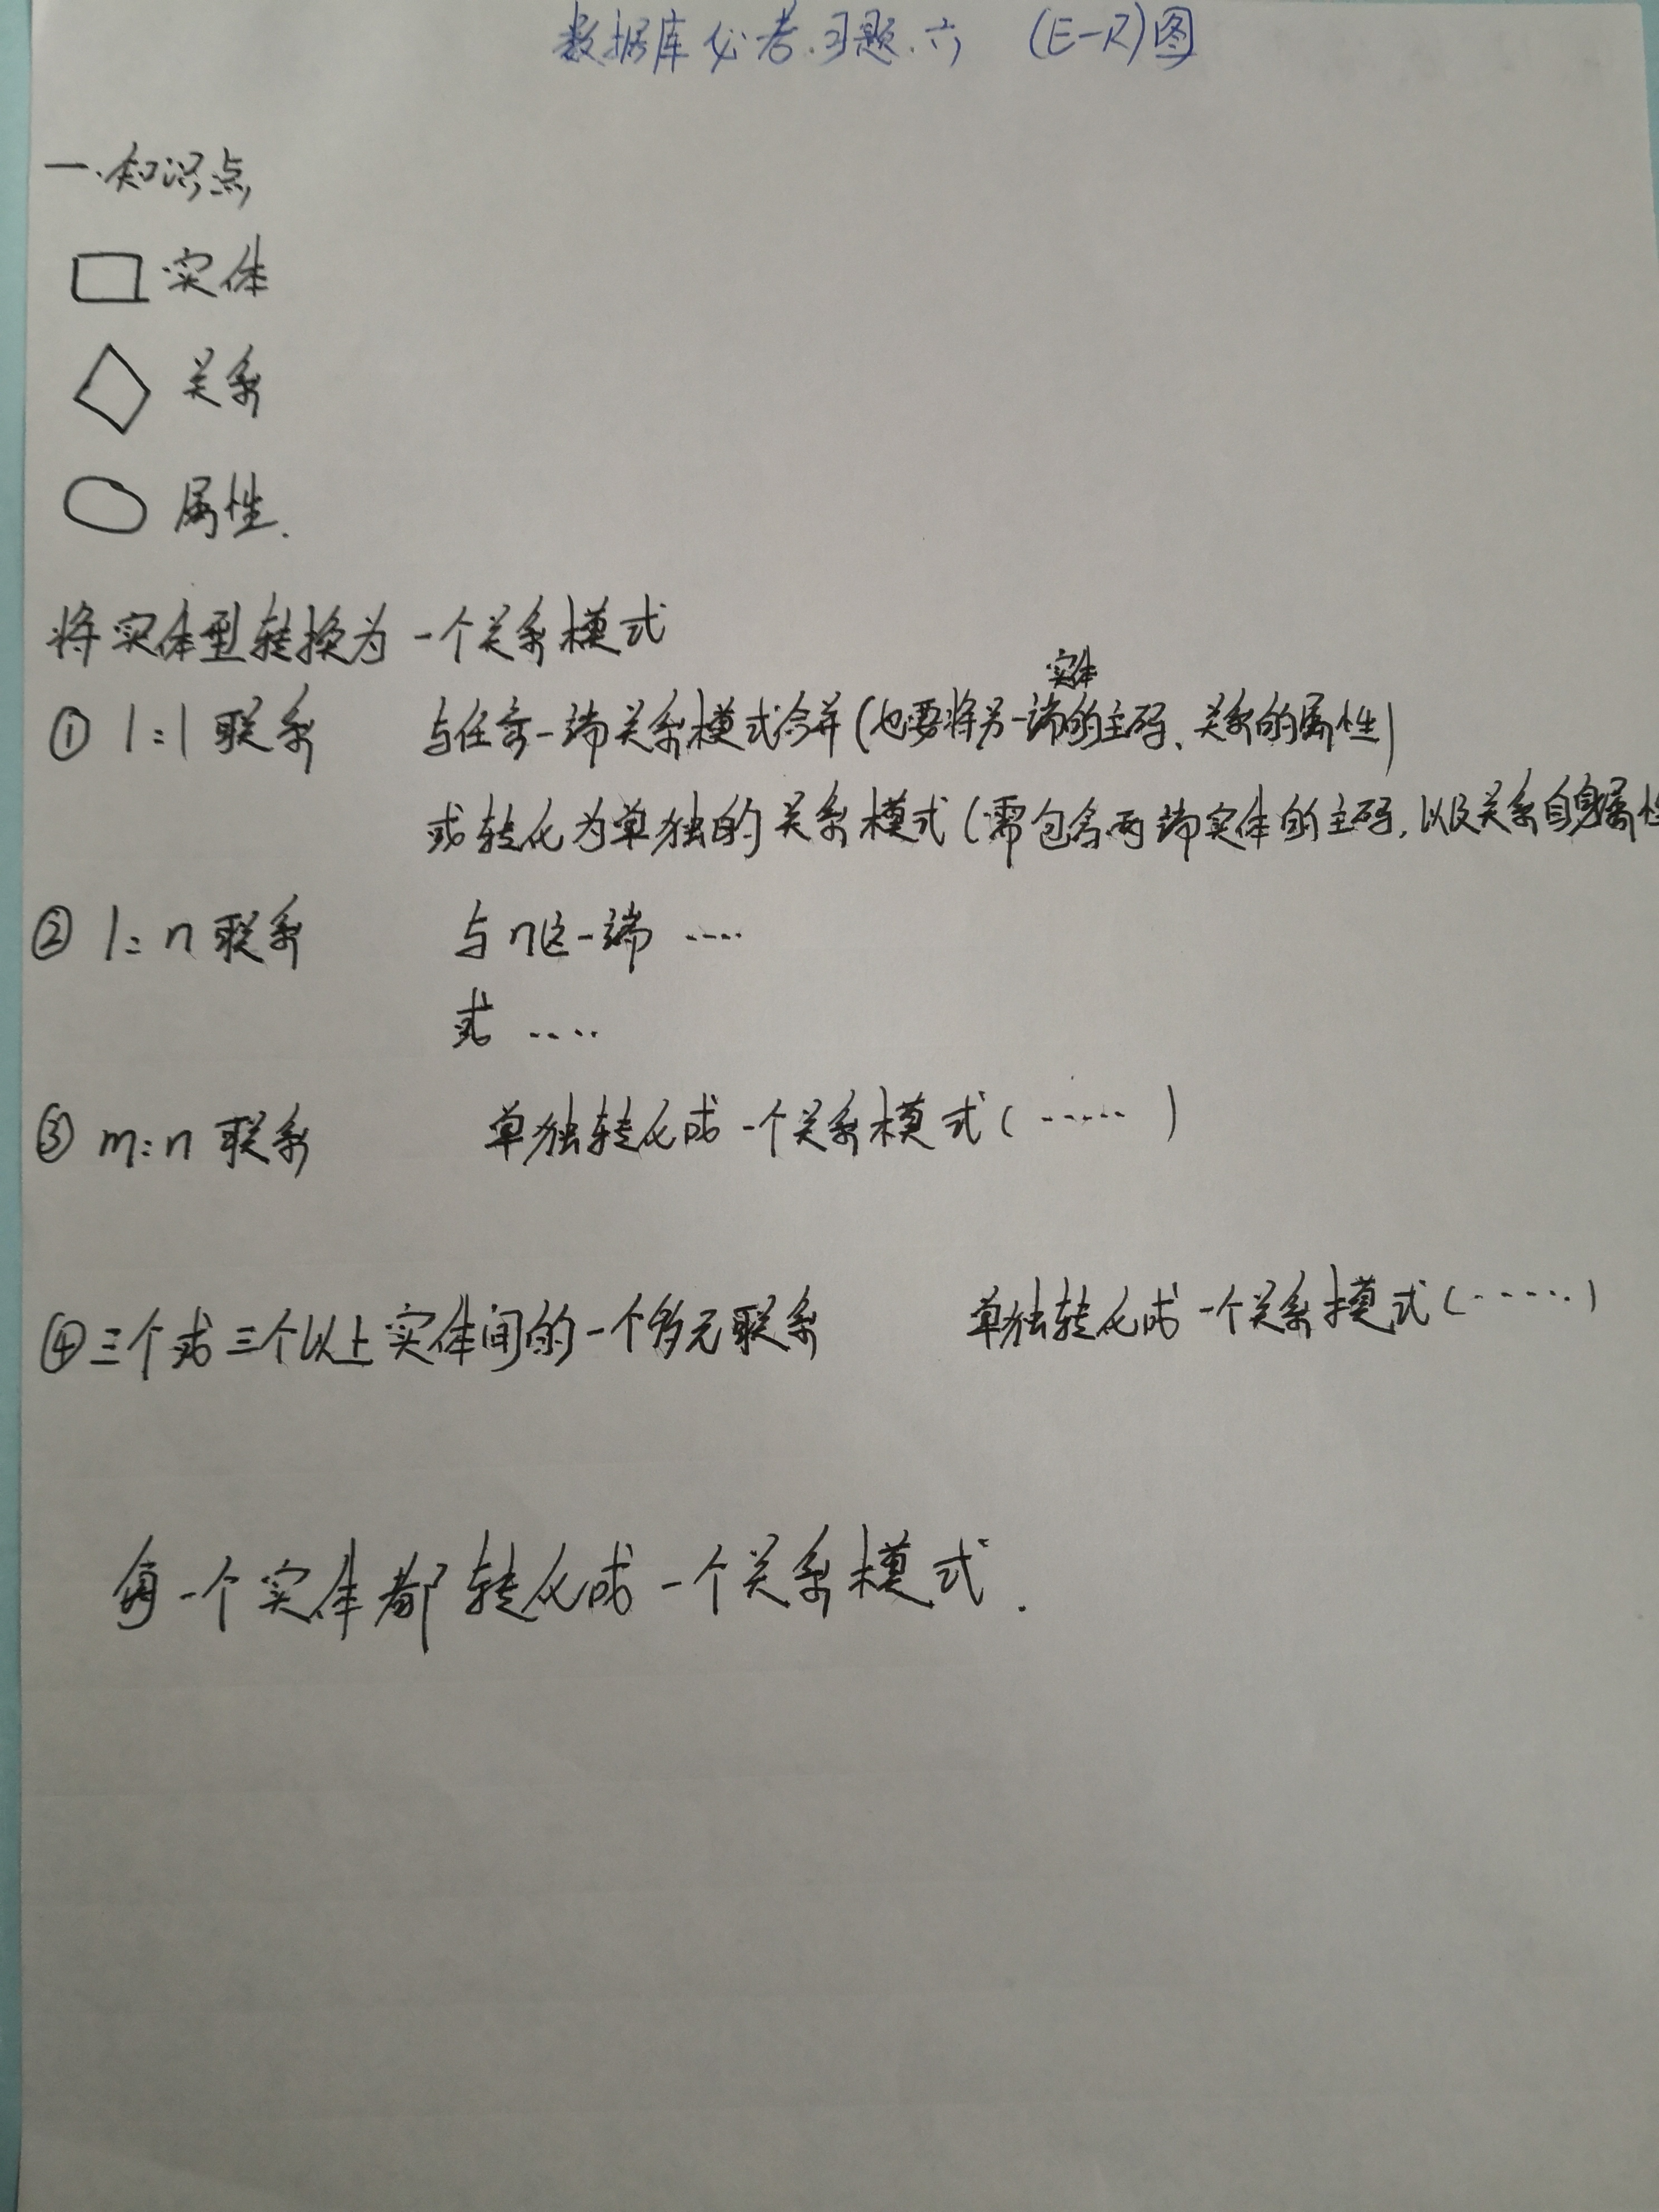 数据库必考.习题.六 (E-R)图
一.知识点
实体
关系
属性.
将实体型转换为一个关系模式
实体
① 1:1联系 与任意一端关系模式合并(也要将另一端的主码、关系的属性)
或转化为单独的关系模式(需包含两端实体的主码,以及关系自身属性
② 1:n联系 与n这一端 ....
或 ....
③ m:n联系 单独转化成一个关系模式(......)
④三个或三个以上实体间的一个多元联系 单独转化成一个关系模式(......)
每一个实体都转化成一个关系模式.